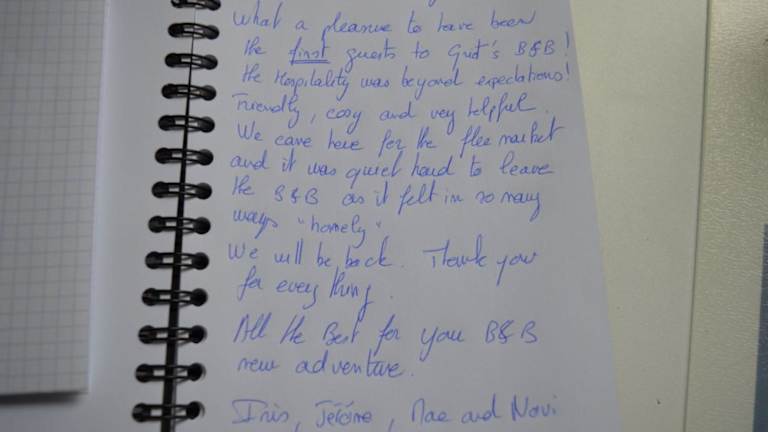 What a pleasure to have been
the first guests to Grit's B&B!
the Hospitality was beyond expectations!
Friendly, cosy and very helpful.
We came here for the flee market
and it was quiet hard to leave
the B&B as it felt in so many
ways "homely"
We will be back. Thank you
for every thing.
All the Best for you B&B
new adventure.
Iris, Jérôme, Mae and Novi